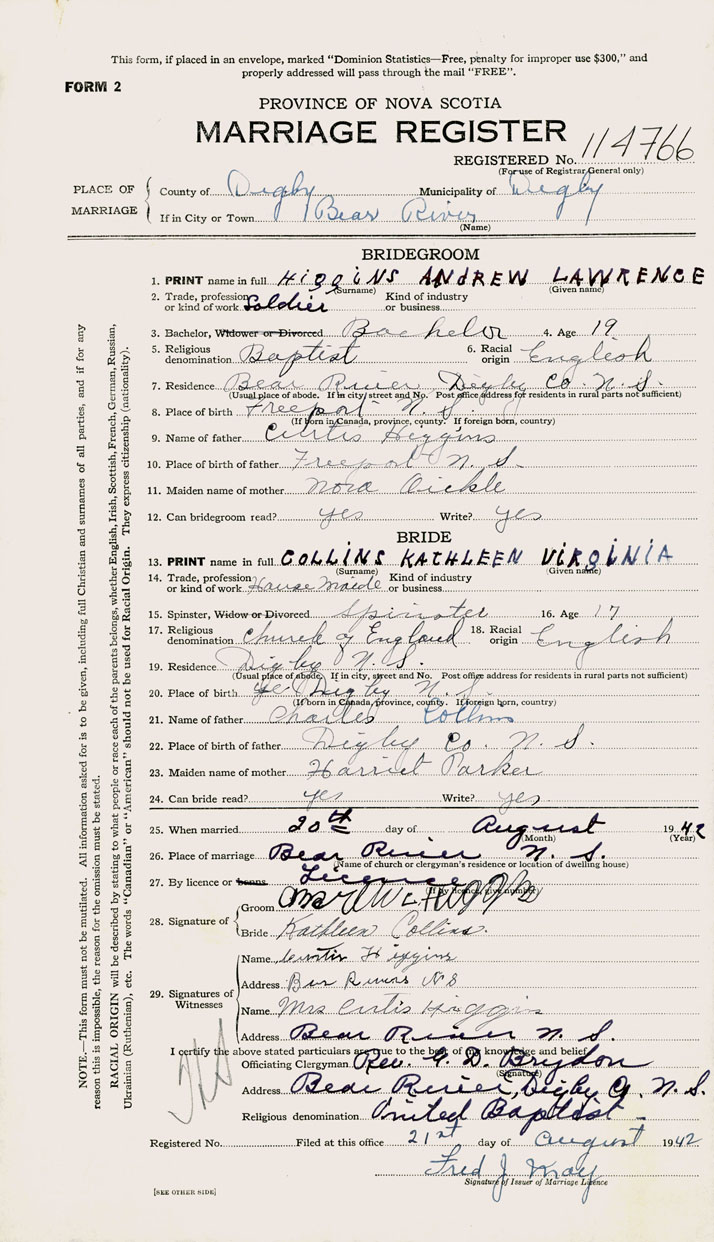 This form, if placed in an envelope, marked "Dominion Statistics—Free, penalty for improper use $300," and
properly addressed will pass through the mail "FREE".
FORM 2
PROVINCE OF NOVA SCOTIA
MARRIAGE REGISTER
REGISTERED No. 114766
(For use of Registrar General only)
PLACE OF MARRIAGE
County of Digby Municipality of Digby
If in City or Town Bear River
(Name)
BRIDEGROOM
1. PRINT name in full HIGGINS ANDREW LAWRENCE
(Surname) (Given name)
2. Trade, profession or kind of work Soldier Kind of industry or business
3. Bachelor, Widower or Divorced Bachelor 4. Age 19
5. Religious denomination Baptist 6. Racial origin English
7. Residence Bear River, Digby Co. N. S.
(Usual place of abode. If in city, street and No. Post office address for residents in rural parts not sufficient)
8. Place of birth Freeport N. S.
(If born in Canada, province, county. If foreign born, country)
9. Name of father Curtis Higgins
10. Place of birth of father Freeport N. S.
11. Maiden name of mother Nora
12. Can bridegroom read? yes Write? yes
BRIDE
13. PRINT name in full COLLINS KATHLEEN VIRGINIA
(Surname) (Given name)
14. Trade, profession or kind of work House Maide Kind of industry or business
15. Spinster, Widow or Divorced Spinster 16. Age 17
17. Religious denomination Church of England 18. Racial origin English
19. Residence Digby N. S.
(Usual place of abode. If in city, street and No. Post office address for residents in rural parts not sufficient)
20. Place of birth Digby N. S.
(If born in Canada, province, county. If foreign born, country)
21. Name of father Charles Collins
22. Place of birth of father Digby Co. N. S.
23. Maiden name of mother Harriet Parker
24. Can bride read? yes Write? yes
25. When married 20th day of August 1942
(Month) (Year)
26. Place of marriage Bear River N. S.
(Name of church or clergyman's residence or location of dwelling house)
27. By licence or banns Licence
(If by licence, give number)
28. Signature of
Groom
Bride Kathleen Collins.
29. Signatures of Witnesses
Name Curtis Higgins
Address Bear River NS
Name Mrs Curtis Higgins
Address Bear River N. S.
I certify the above stated particulars are true to the best of my knowledge and belief
Officiating Clergyman Rev. D. Brydon
(Signature)
Address Bear River, Digby Co. N. S.
Religious denomination United Baptist
Registered No. Filed at this office 21st day of August 1942
Fred J May
Signature of Issuer of Marriage Licence
[SEE OTHER SIDE]
NOTE.—This form must not be mutilated. All information asked for is to be given, including full Christian and surnames of all parties, and if for any
reason this is impossible, the reason for the omission must be stated.
RACIAL ORIGIN will be described by stating to what people or race each of the parents belongs, whether English, Irish, Scottish, French, German, Russian,
Ukrainian (Ruthenian), etc. The words "Canadian" or "American" should not be used for Racial Origin. They express citizenship (nationality).